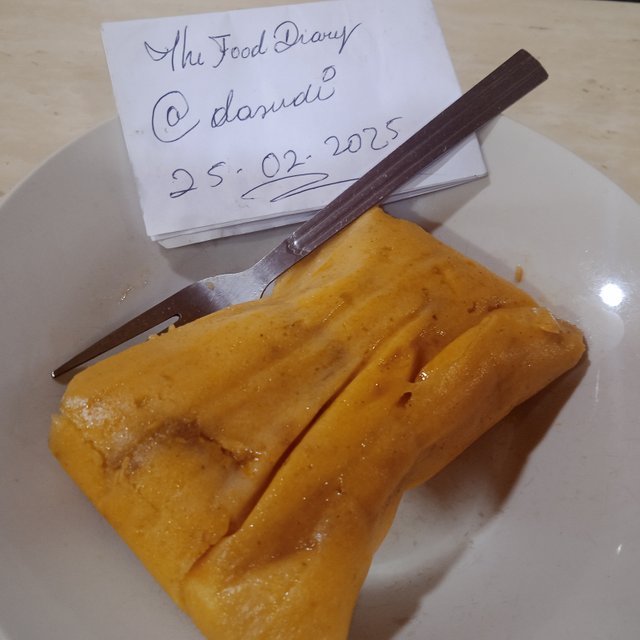 The Food Diary
@dasudi
25.02.2025